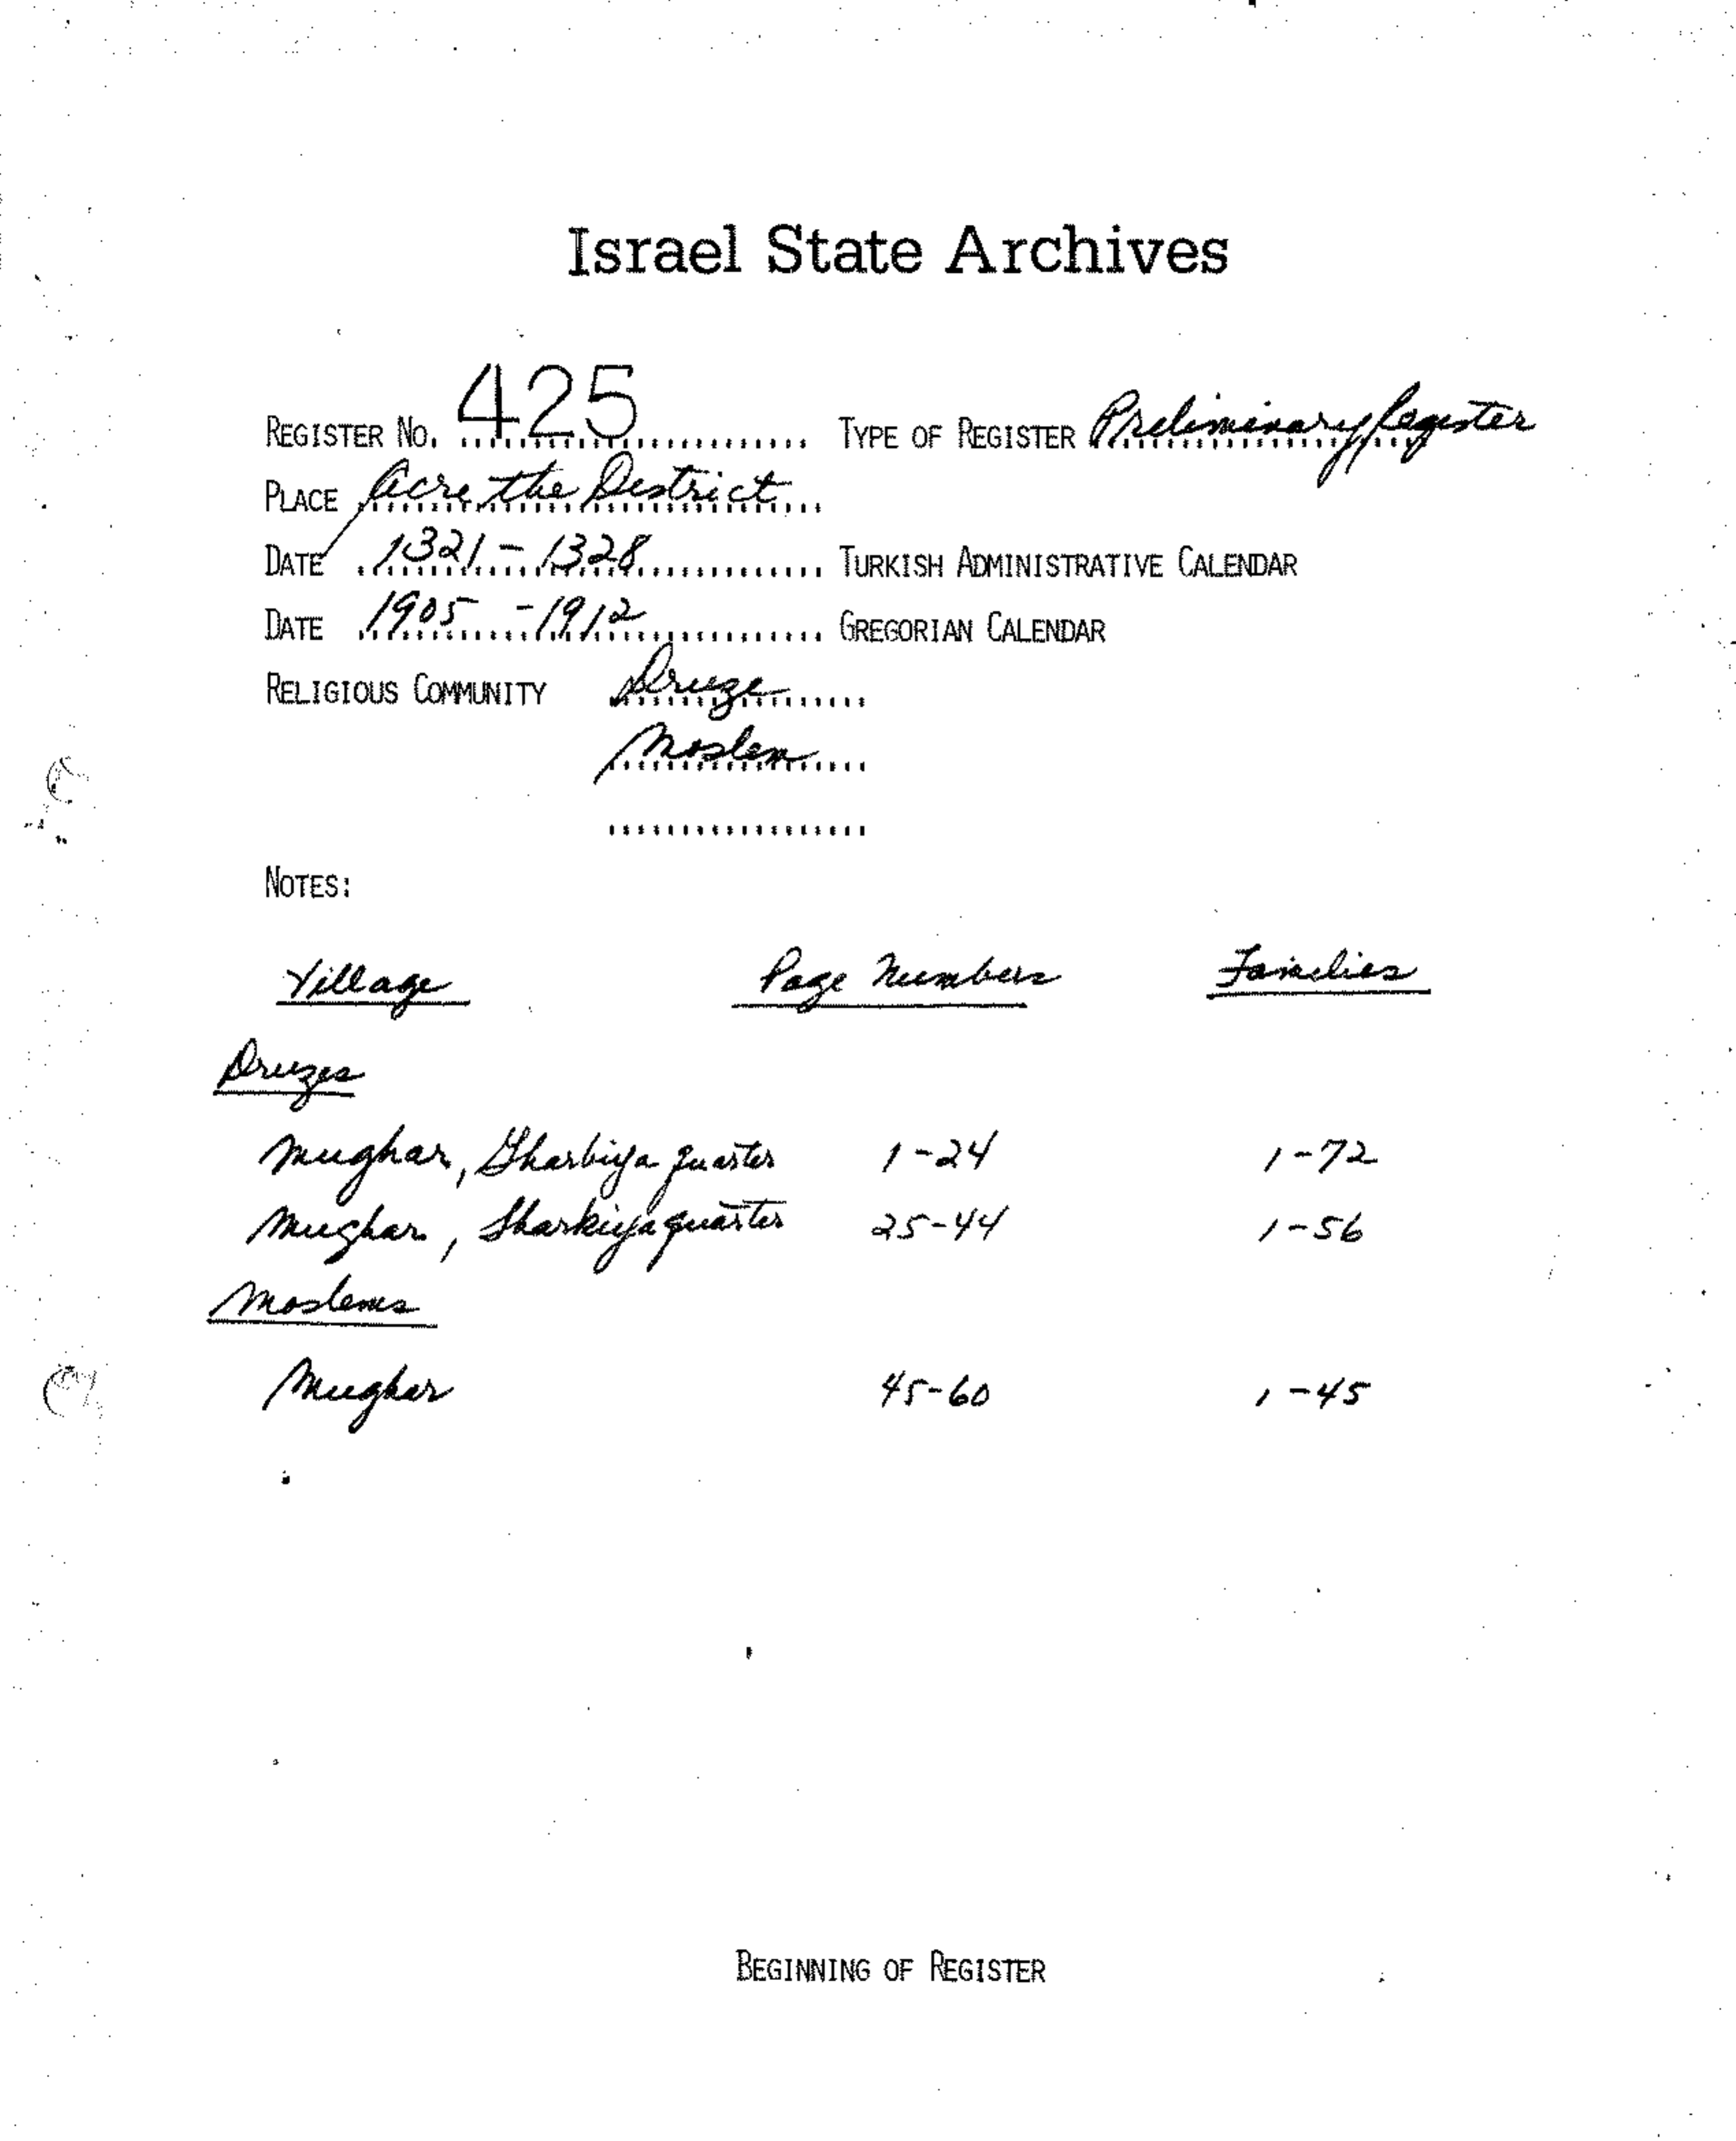 Israel State Archives
REGISTER No. 425 TYPE OF REGISTER Preliminary Register
PLACE Acre, the District
DATE 1321-1328 TURKISH ADMINISTRATIVE CALENDAR
DATE 1905-1912 GREGORIAN CALENDAR
RELIGIOUS COMMUNITY Druze
Moslem
NOTES:
Village Page Numbers Families
Druzes
Mughar, Gharbiya quarter 1-24 1-72
Mughar, Sharkiya quarter 25-44 1-56
Moslems
Mughar 45-60 1-45
BEGINNING OF REGISTER